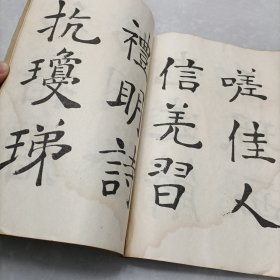 嗟佳人
信羌習
禮明詩
抗瓊珶